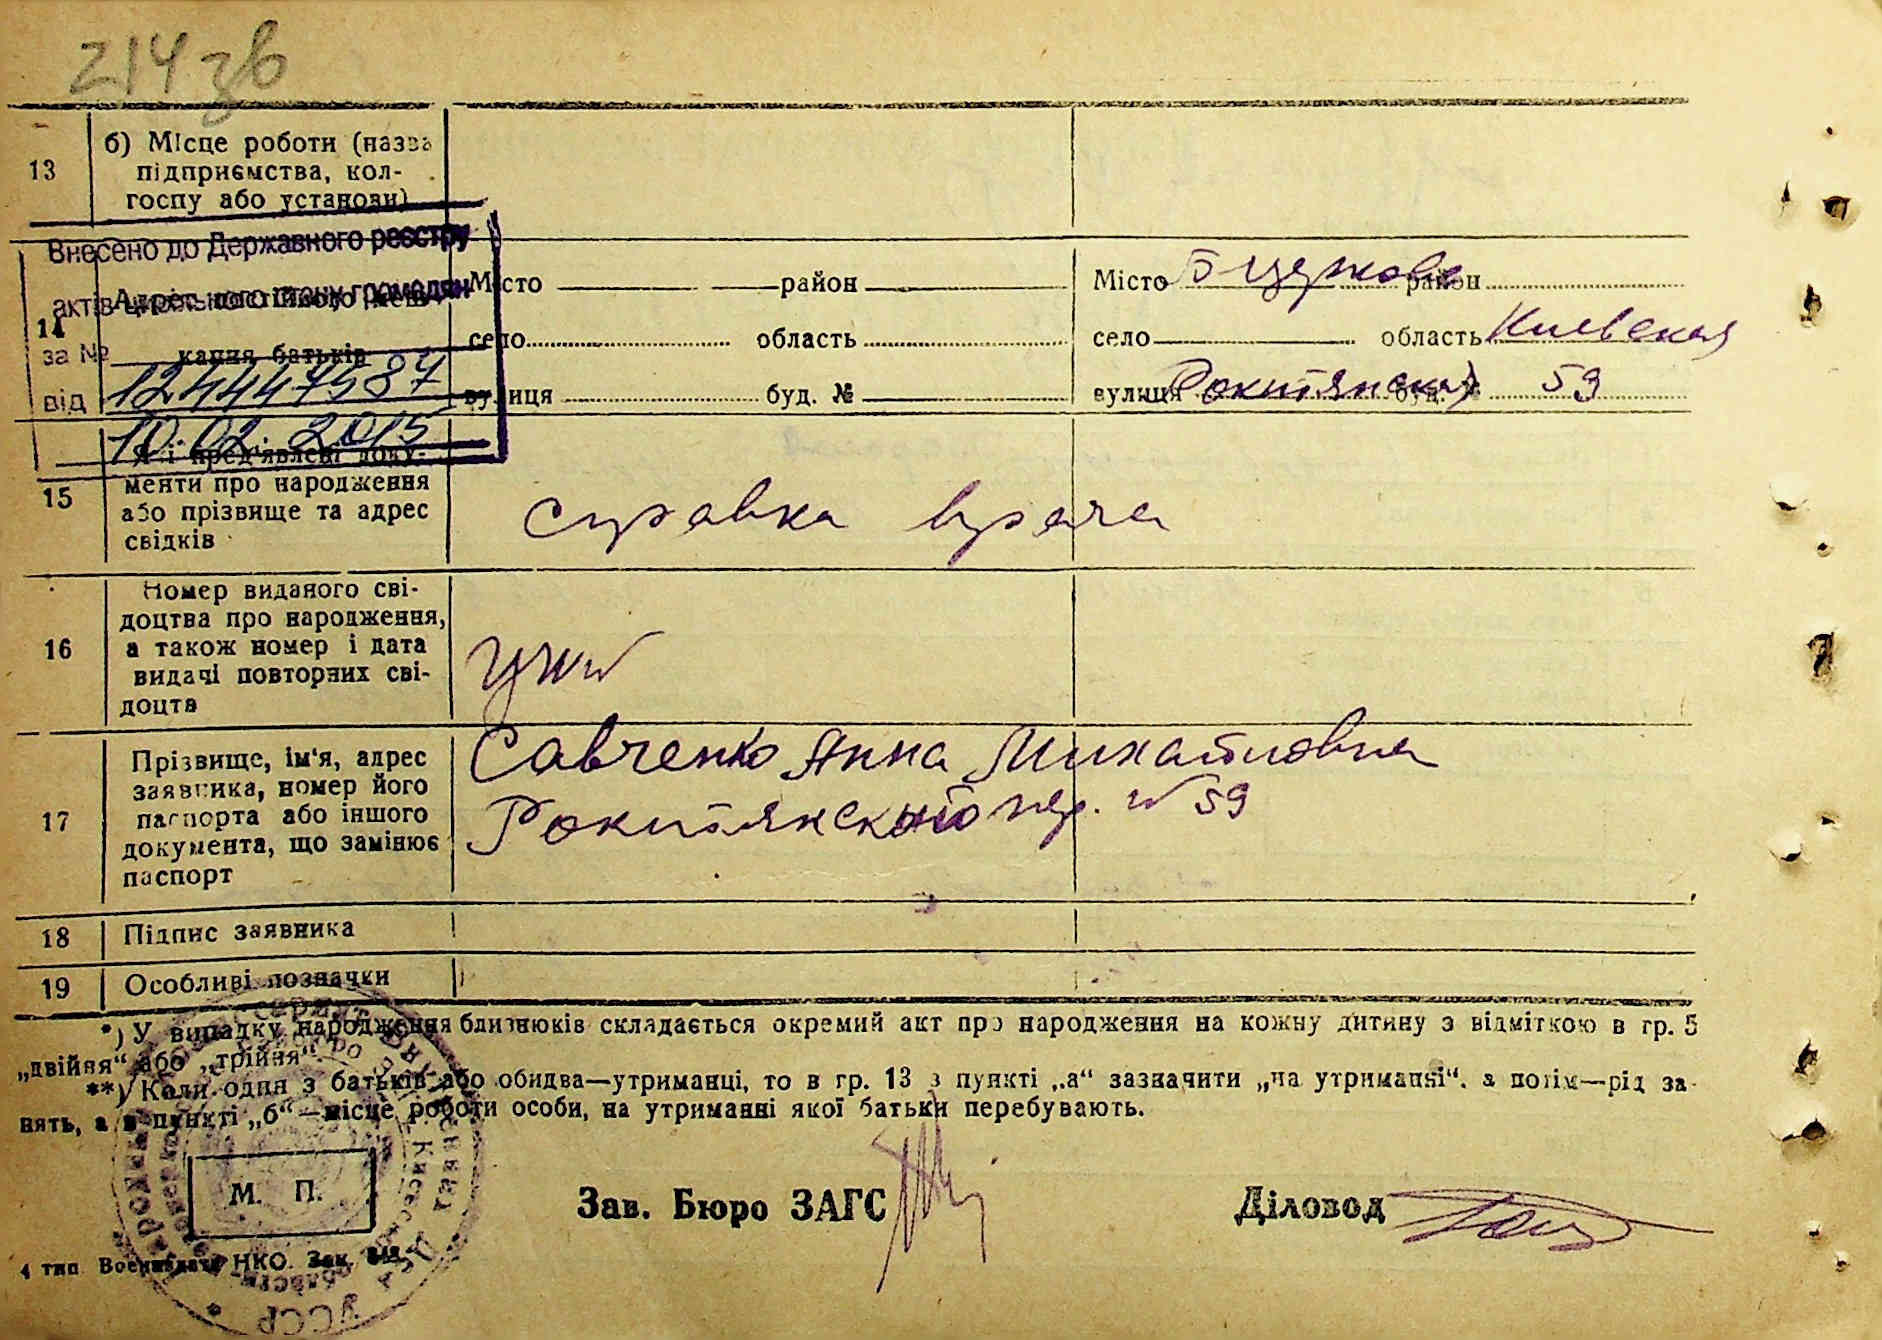 214 зв
13 б) Місце роботи (назва
підприємства, кол-
госпу або установи)
Внесено до Державного реєстру
актів цивільного стану громадян
за №
1244447587
від
10.02.2015
14 Адрес постійного меш-
кання батьків
Місто район
село область
вулиця буд. №
Місто Б Церковь район
село область Киевская
вулиця Рокитянская буд. № 59
15 Які пред'явлені доку-
менти про народження
або прізвище та адрес
свідків
справка врача
16 Номер виданого сві-
доцтва про народження,
а також номер і дата
видачі повторних сві-
доцтв
17 Прізвище, ім'я, адрес
заявника, номер його
паспорта або іншого
документа, що замінює
паспорт
Савченко Анна Михайловна
Рокитянский пер. № 59
18 Підпис заявника
19 Особливі позначки
*) У випадку народження близнюків складається окремий акт про народження на кожну дитину з відміткою в гр. 5
„двійня“ або „трійня“.
**) Коли один з батьків або обидва—утриманці, то в гр. 13 в пункті „а“ зазначити „на утриманні“, а потім—рід за-
нять, а в пункті „б“—місце роботи особи, на утриманні якої батьки перебувають.
М. П.
Зав. Бюро ЗАГС
Діловод
4 тип Воениздата НКО. Зак.
УССР